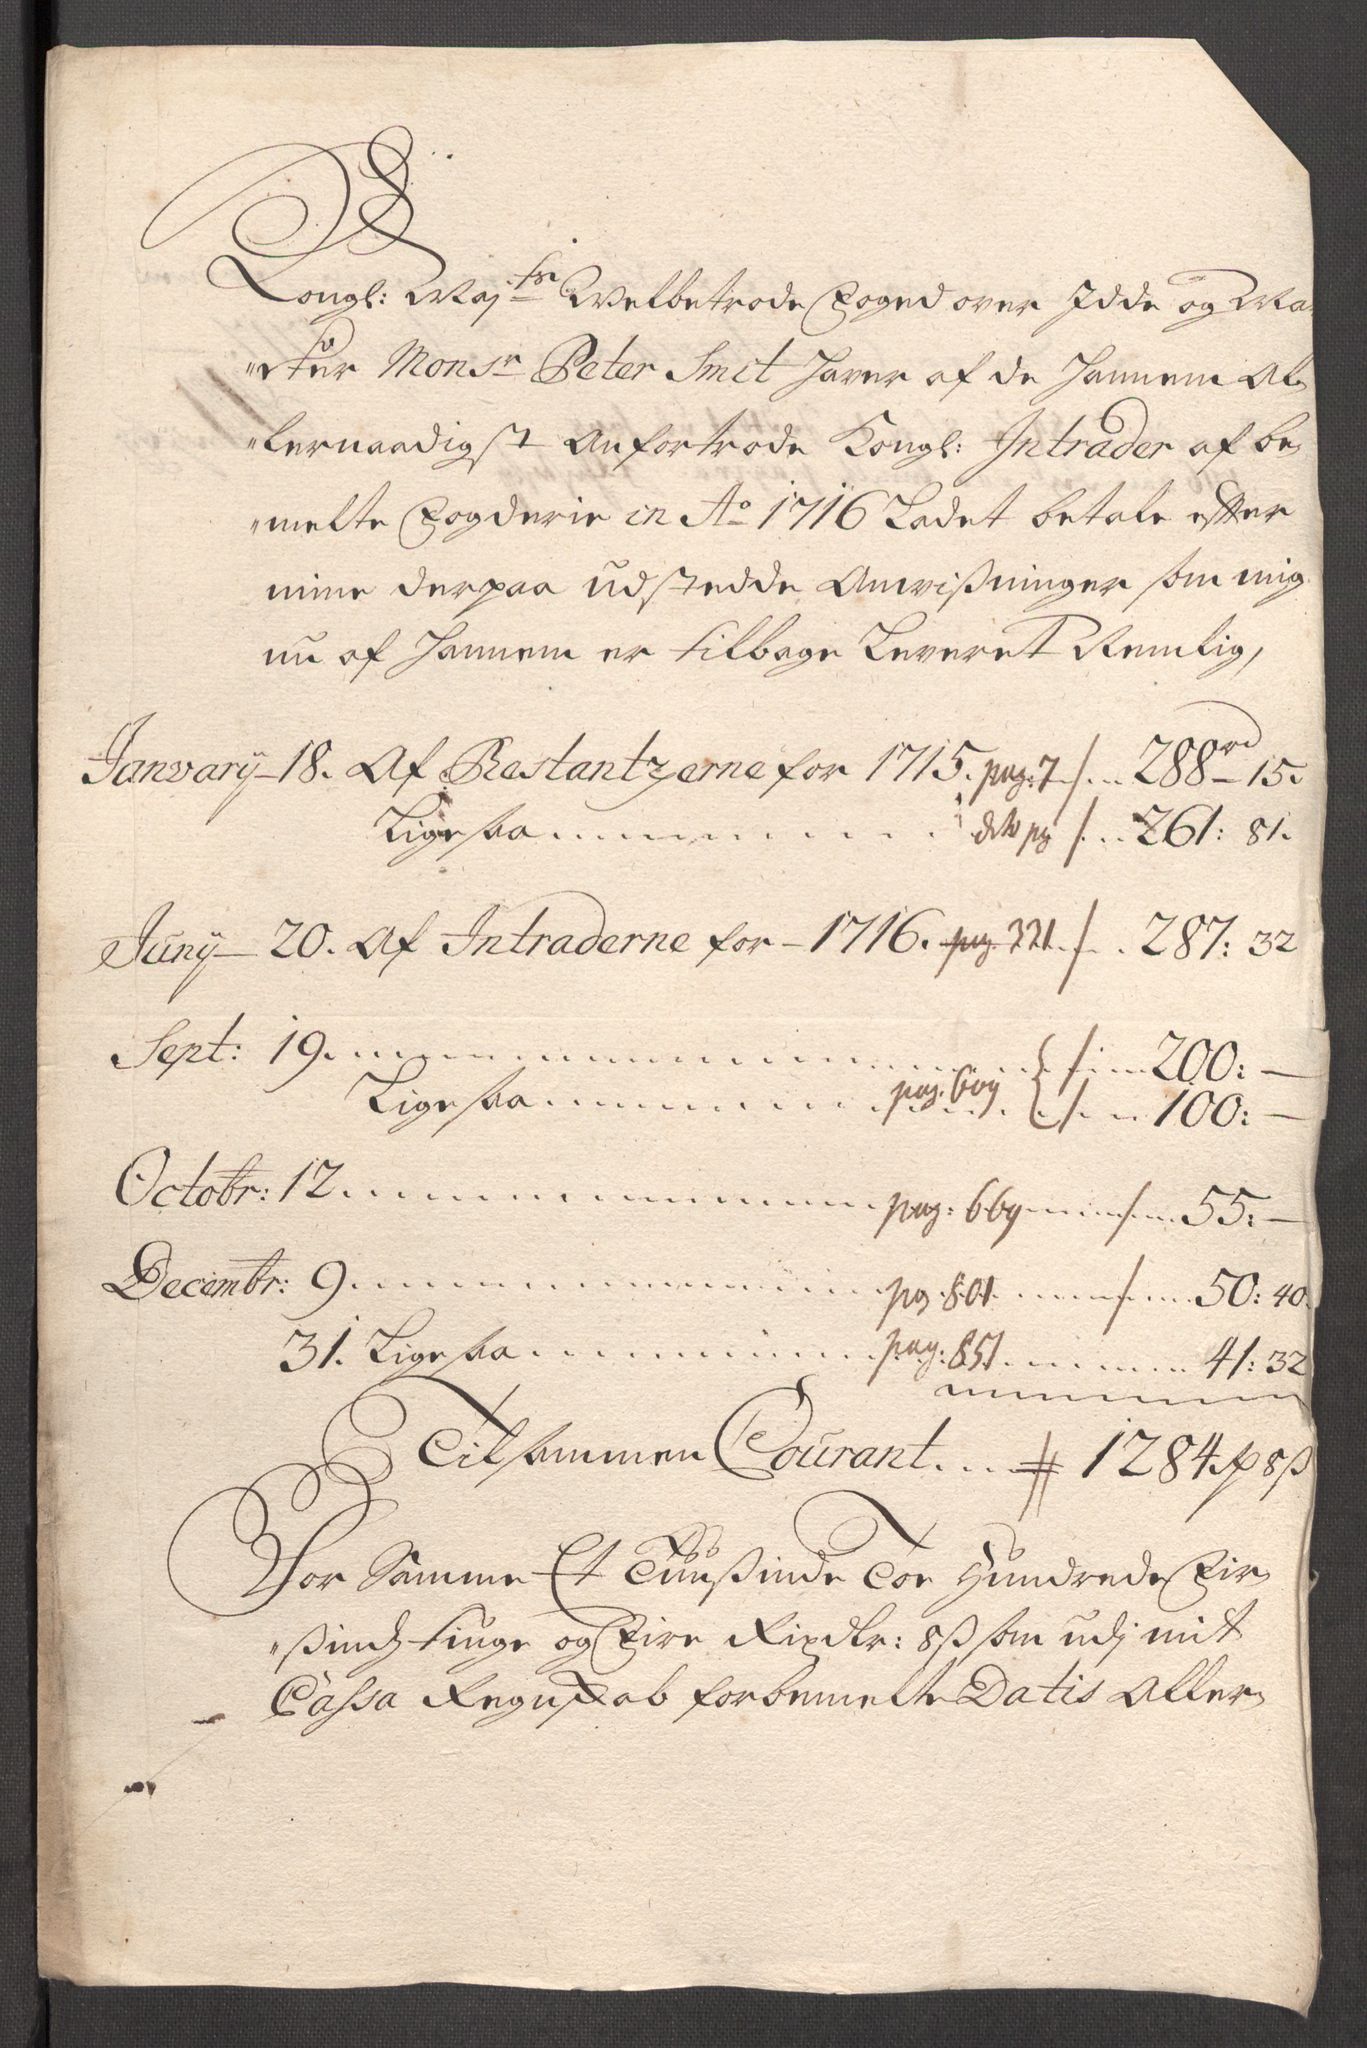 Kongl: Maj:ts Welbetrode Foged over Idde og Ma-
"rker Monsr Peter Smit Haver af de Hannem Al-
"lernaadigst Anfortrode Kongl: Intrader af be-
"melte Fogderie in Ao 1716 Ladet betale efter
mine derpaa udstedde Anvißninger som mig
nu af Hannem er tilbage Leveret Nemlig,
Janvarÿ 18. Af Restantzerne for 1715. pag: 7 /. 288rd 15.
Ligesaa dito pag /. 261: 81.
Junÿ 20. Af Intraderne for 1716. pag. 221 /. 287: 32
Sept: 19. /. 200: —
Ligesaa pag. 609 /. 100: —
Octobr: 12. pag: 669 /. 55: —
Decembr: 9. pag 801 /. 50: 40.
31. Ligesaa pag. 851 41: 32
Tilsammen Courant. 1284. 8 ß
Hvor Samme Et Tuußinde Toe Hundrede Fir-
"ßinds tiuge og Fire Rixdlr: 8 ß som udj mit
Cassa Regnskab forbemelte Datis Aller-